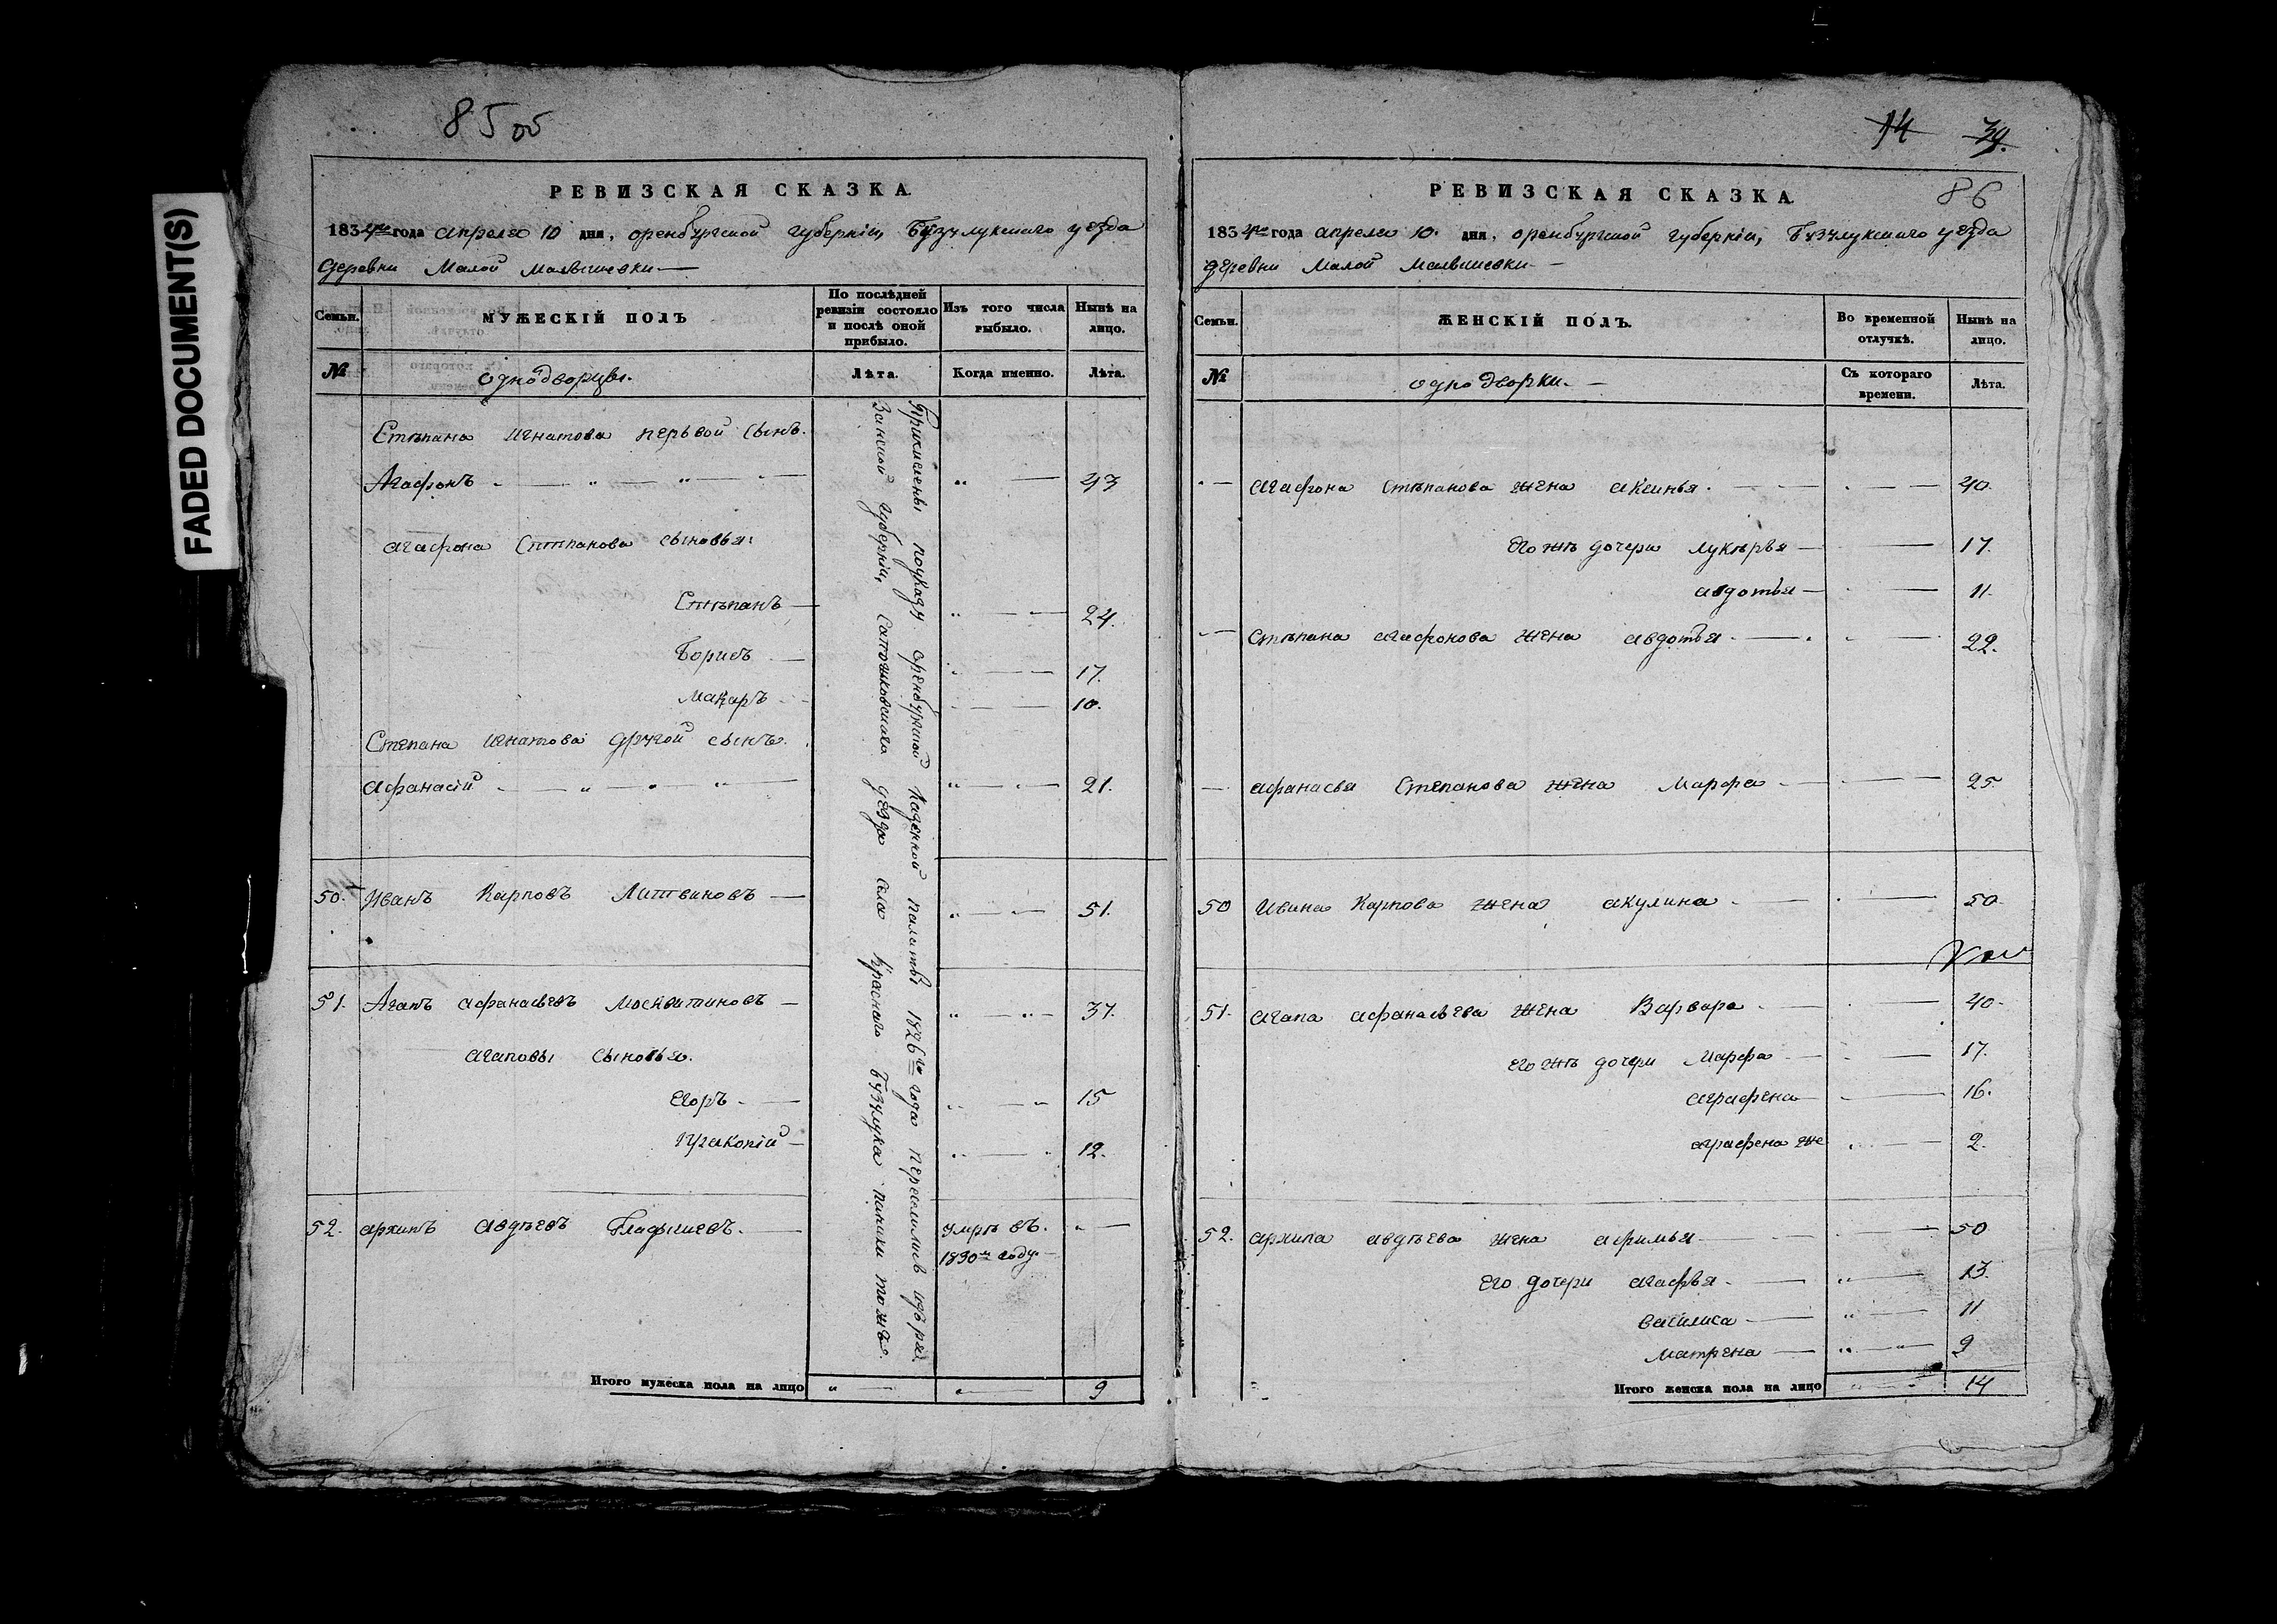 FADED DOCUMENT(S)
85 об
РЕВИЗСКАЯ СКАЗКА
1834го года апреля 10 дня, оренбургской губернiи, Бузулукскаго уезда
деревни Малой Малышевки
Семьи.
МУЖЕСКIЙ ПОЛЪ
По послѣдней ревизiи состояло и послѣ оной прибыло.
Изъ того числа выбыло.
Нынѣ на лицо.
№
однодворцы.
Лѣта.
Когда именно.
Лѣта.
Стѣпана Игнатова перьвой сынъ.
Агафонъ 43
агафона Стѣпанова сыновья:
Стѣпанъ 24.
Борисъ 17.
Макаръ 10.
Степана Игнатова другой сынъ.
Афанасiй 21.
50. Иванъ Карповъ Литвиновъ 51.
51. Агапъ афанасьевъ Москвитиновъ 37.
агаповы сыновья.
Егоръ 15
Пракопiй 12.
52. архипъ Авдѣевъ Гладышевъ. умрѣ въ.
1830м году
Причислены поуказу оренбургской Казенной палаты 1826го года переселились изъ ря
занской губернiи, Сапожковскаго уезда села Краснаго
Итого мужеска пола на лицо 9
14 39.
86
РЕВИЗСКАЯ СКАЗКА
1834го года апреля 10. дня, оренбургской губернiи, Бузулукскаго уезда
деревни Малой Малышевки
Семьи.
ЖЕНСКIЙ ПОЛЪ.
Во временной отлучкѣ.
Нынѣ на лицо.
№
однодворки.
Съ котораго времени.
Лѣта.
агафона Стѣпанова жена аксинья. 40.
Его жъ дочери лукѣрья 17.
авдотья 11.
Стѣпана агафонова жена авдотья 22.
афанасья Степанова жена Марфа 25.
50 Ивана Карпова жена акулина 50.
51. агапа афанасьева жена Варвара 40.
его жъ дочери Марфа 17.
аграфена 16.
аграфена же 2.
52. архипа авдѣева жена афимья 50
Его дочери агафья 13.
василиса 11
матрена 9
Итого женска пола на лицо 14